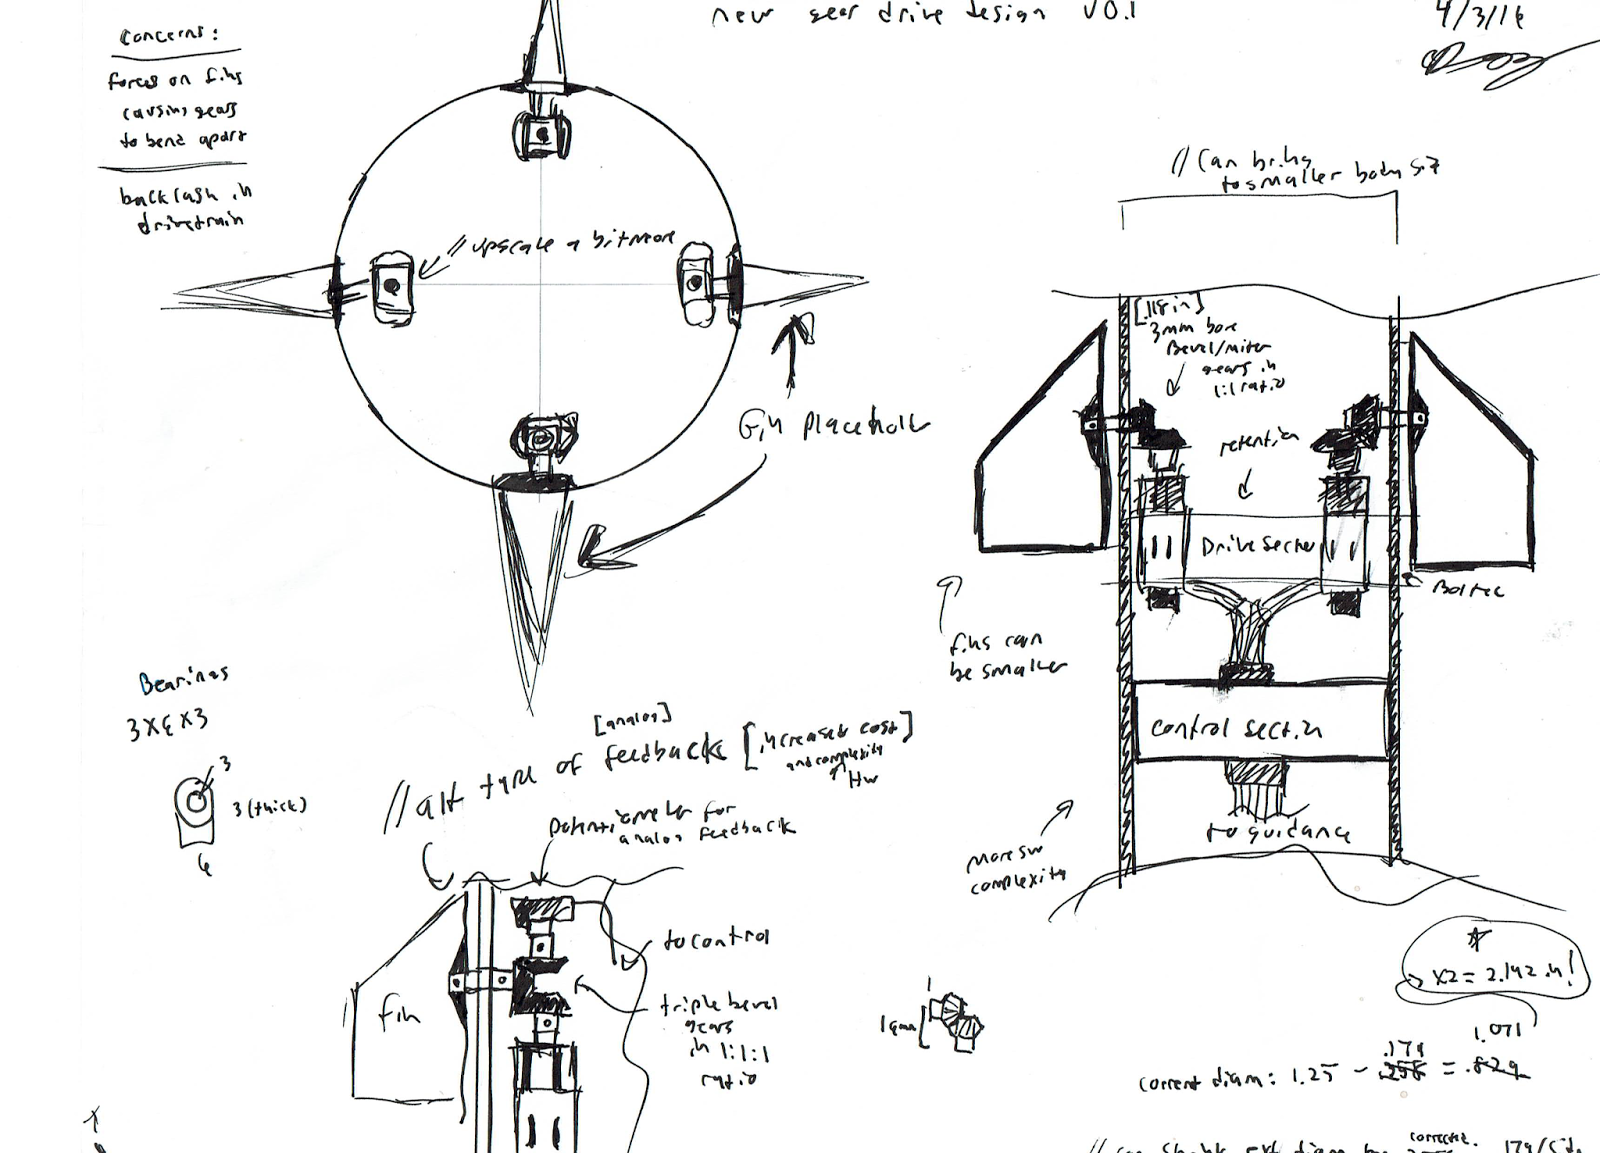 new gear drive design v0.1
4/3/16
Concerns:
forces on fins
causing gears
to bend apart
backlash in
drivetrain
// upscale a bit more
Fin placeholder
// Can bring
to smaller body siz
[.118in]
3mm bore
Bevel/miter
gears in
1:1 ratio
retention
Drive section
Bolted
fins can
be smaller
control section
to guidance
More SW
complexity
Bearings
3x6x3
3
3 (thick)
6
// alt type of feedback [increased cost]
[analog]
and complexity
HW
potentiometer for
analog feedback
to control
triple bevel
gears
in 1:1:1
ratio
fin
x2 = 2.142 in!
1.071
.179
current diam: 1.25 - .258 = .829
corrected.